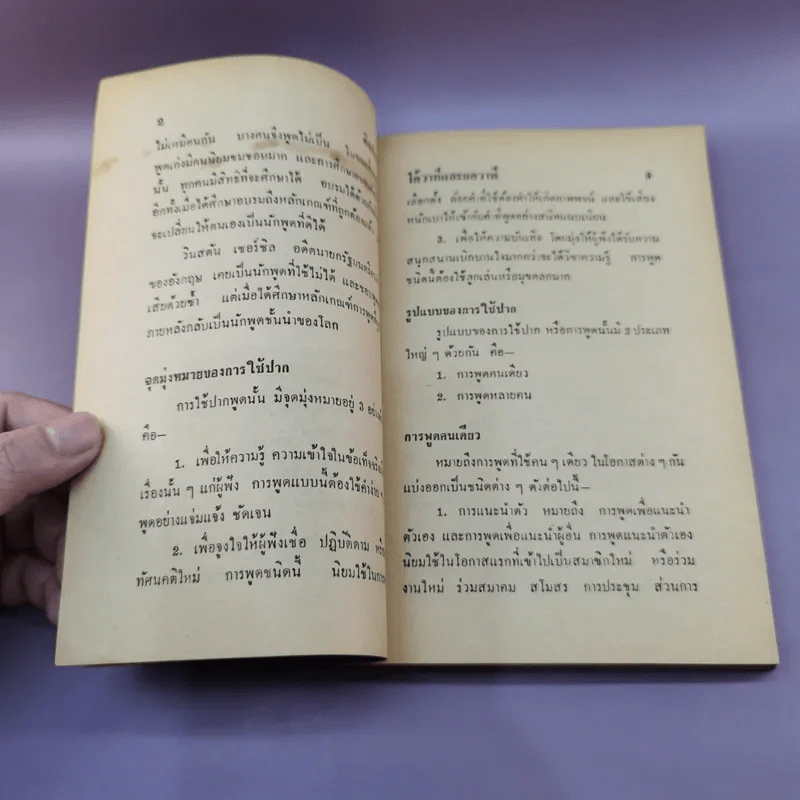 2
ไม่เหมือนกัน บางคนจึงพูดไม่เป็น
พูดเก่งมีคนนิยมชมชอบมาก และการศึกษา
นั้น ทุกคนมีสิทธิที่จะศึกษาได้ อบรมได้ด้วย
อีกทั้งเมื่อได้ศึกษาอบรมถึงหลักเกณฑ์ที่ถูกต้อง
จะเปลี่ยนให้ตนเองเป็นนักพูดที่ดีได้
วินสตัน เชอร์ชิล อดีตนายกรัฐมนตรี
ของอังกฤษ เคยเป็นนักพูดที่ใช้ไม่ได้ และ
เสียด้วยซ้ำ แต่เมื่อได้ศึกษาหลักเกณฑ์การพูด
ภายหลังกลับเป็นนักพูดชั้นนำของโลก
จุดมุ่งหมายของการใช้ปาก
การใช้ปากพูดนั้น มีจุดมุ่งหมายอยู่ 3
คือ—
1. เพื่อให้ความรู้ ความเข้าใจในข้อเท็จจริง
เรื่องนั้น ๆ แก่ผู้ฟัง การพูดแบบนี้ต้องใช้คำง่าย ๆ
พูดอย่างแจ่มแจ้ง ชัดเจน
2. เพื่อจูงใจให้ผู้ฟังเชื่อ ปฏิบัติตาม
ทัศนคติใหม่ การพูดชนิดนี้ นิยมใช้ใน
โต้วาทีและยอวาที 3
เลือกตั้ง ถ้อยคำที่ใช้ต้องทำให้เกิดภาพพจน์ และใช้เสียง
หนักเบาให้เข้ากับคำที่พูดอย่างสนิทแนบเนียน
3. เพื่อให้ความบันเทิง โดยมุ่งให้ผู้ฟังได้รับความ
สนุกสนานเบิกบานใจมากกว่าจะได้วิชาความรู้ การพูด
ชนิดนี้ต้องใช้ลูกเล่นหรือมุขตลกมาก
รูปแบบของการใช้ปาก
รูปแบบของการใช้ปาก หรือการพูดนั้นมี 2 ประเภท
ใหญ่ ๆ ด้วยกัน คือ—
1. การพูดคนเดียว
2. การพูดหลายคน
การพูดคนเดียว
หมายถึงการพูดที่ใช้คน ๆ เดียว ในโอกาสต่าง ๆ กัน
แบ่งออกเป็นชนิดต่าง ๆ ดังต่อไปนี้—
1. การแนะนำตัว หมายถึง การพูดเพื่อแนะนำ
ตัวเอง และการพูดเพื่อแนะนำผู้อื่น การพูดแนะนำตัวเอง
นิยมใช้ในโอกาสแรกที่เข้าไปเป็นสมาชิกใหม่ หรือร่วม
งานใหม่ ร่วมสมาคม สโมสร การประชุม ส่วนการ